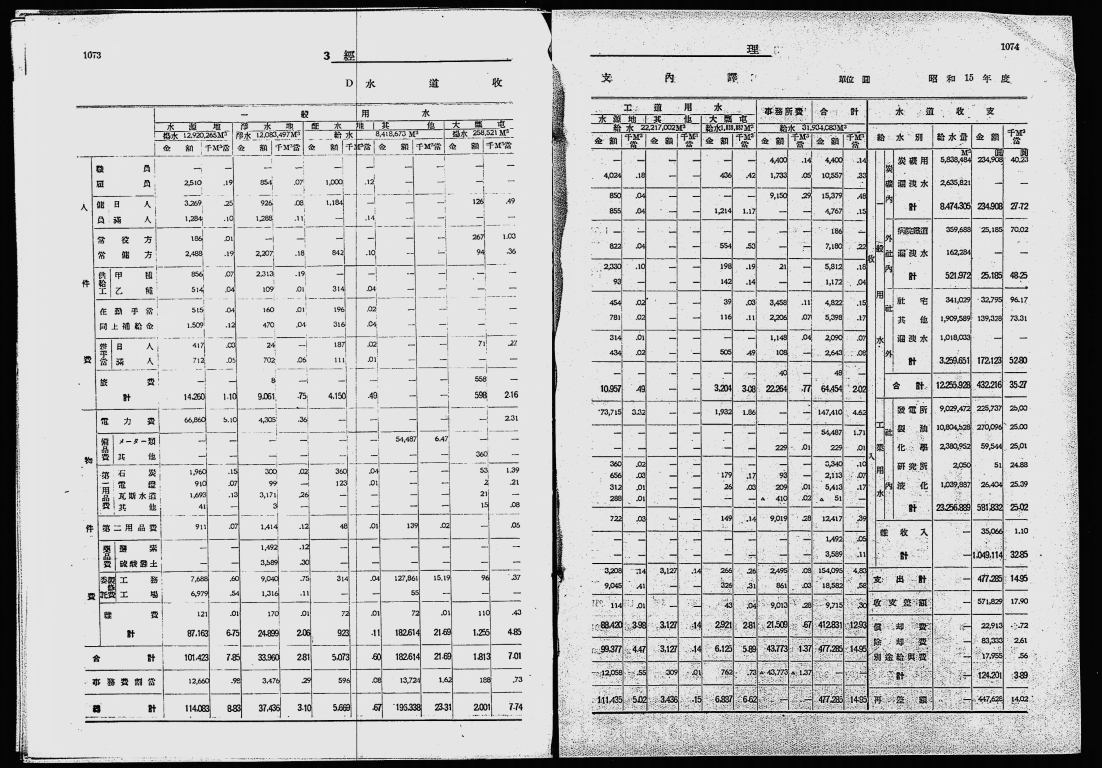 1073
3 經
D 水 道 收
一 般 用 水
水源地 淨水地 配水地 其他 大鷹屯
揚水 12,920,265M³ 淨水 12,083,497M³ 給水 8,418,673M³ 揚水 258,521M³
金額 千M³當 金額 千M³當 金額 千M³當 金額 千M³當 金額 千M³當
人件費
職員 — — — — — — — — — —
雇員 2,510 .19 854 .07 1,000 .12 — — — —
傭員 日人 3,269 .25 926 .08 1,184 — — 126 .49
滿人 1,284 .10 1,288 .11 — .14 — — — —
常役方 186 .01 — — — — — — 267 1.03
常傭方 2,488 .19 2,207 .18 842 .10 — — 94 .36
供給工 甲種 856 .07 2,313 .19 — — — — — —
乙種 514 .04 109 .01 314 .04 — — — —
在勤手當 515 .04 160 .01 196 .02 — — — —
同上補給金 1,509 .12 470 .04 316 .04 — — — —
日人 417 .03 24 — 187 .02 — — 71 .27
滿人 712 .05 702 .06 111 .01 — — — —
旅費 — — 8 — — — — — 558
計 14,260 1.10 9,061 .75 4,150 .49 — — 598 2.16
物件費
電力費 66,860 5.10 4,305 .36 — — — — — 2.31
備品費 メーター類 — — — — — — 54,487 6.47 — —
其他 — — — — — — — — 360
第一用品費 石炭 1,960 .15 300 .02 360 .04 — — 53 1.39
電燈 910 .07 99 — 123 .01 — — 2 .21
瓦斯水道 1,693 .13 3,171 .26 — — — — 21
其他 41 — 3 — — — — — 15 .08
第二用品費 911 .07 1,414 .12 48 .01 139 .02 — .06
藥品費 鹽素 — — 1,492 .12 — — — — — —
硫酸礬土 — — 3,589 .30 — — — — — —
工務 7,688 .60 9,040 .75 314 .04 127,861 15.19 96 .37
工場 6,979 .54 1,316 .11 — — 55 — — —
雜費 121 .01 170 .01 72 .01 72 .01 110 .43
計 87,163 6.75 24,899 2.06 923 .11 182,614 21.69 1,255 4.85
合計 101,423 7.85 33,960 2.81 5,073 .60 182,614 21.69 1,813 7.01
事務費割當 12,660 .98 3,476 .29 596 .08 13,724 1.62 188 .73
總計 114,083 8.83 37,436 3.10 5,669 .67 196,338 23.31 2,001 7.74
理
1074
支 內 譯
單位 圓 昭和15年度
工道用水 事務所費 合計
水源地 其他 大鷹屯
給水 22,217,002M³ 給水 給水 31,934,083M³
金額 千M³當 金額 千M³當 金額 千M³當 金額 千M³當 金額 千M³當
— — — — — — 4,400 .14 4,400 .14
4,024 .18 — — 436 .42 1,733 .05 10,557 .33
850 .04 — — — — 9,150 .29 15,379 .48
855 .04 — — 1,214 1.17 — — 4,767 .15
— — — — — — — — 186 —
822 .04 — — 554 .53 — — 7,180 .22
2,330 .10 — — 198 .19 21 — 5,812 .18
93 — — — 142 .14 — — 1,172 .04
454 .02 — — 39 .03 3,458 .11 4,822 .15
781 .02 — — 116 .11 2,206 .07 5,398 .17
314 .01 — — — — 1,148 .04 2,090 .07
434 .02 — — 505 .49 108 — 2,643 .08
— — — — — — 40 — 48 —
10,957 .49 — — 3,204 3.08 22,264 .77 64,454 2.02
73,715 3.32 — — 1,932 1.86 — — 147,410 4.62
— — — — — — — — 54,487 1.71
— — — — — — 229 .01 229 .01
360 .02 — — — — — — 3,340 .10
656 .03 — — 179 .17 93 — 2,113 .07
312 .01 — — 26 .03 209 .01 5,413 .17
288 .01 — — — — ▲ 410 .02 ▲ 51 —
722 .03 — — 149 .14 9,019 .28 12,417 .39
— — — — — — — — 1,492 .05
— — — — — — — — 3,589 .11
3,208 .14 3,127 .14 266 .26 2,495 .08 154,095 4.83
9,045 .41 — — 326 .31 861 .03 18,582 .58
114 .01 — — 43 .04 9,013 .28 9,715 .30
88,420 3.98 3,127 .14 2,921 2.81 21,509 .67 412,831 12.93
99,377 4.47 3,127 .14 6,125 5.89 43,773 1.37 477,285 14.95
12,058 .55 309 .01 762 .73 ▲43,773 ▲1.37 — —
111,435 5.02 3,436 .15 6,887 6.62 — — 477,285 14.95
水道收支
給水別 給水量 金額 千M³當
M³ 圓 圓
收入
一般用水
炭礦內 炭礦用 5,838,484 234,908 40.23
漏洩水 2,635,821 — —
計 8,474,305 234,908 27.72
社內 359,688 25,185 70.02
漏洩水 162,284 — —
計 521,972 25,185 48.25
社外 社宅 341,029 32,795 96.17
其他 1,909,589 139,328 73.31
漏洩水 1,018,033 — —
計 3,259,651 172,123 52.80
合計 12,255,928 432,216 35.27
工業用水
社內 發電所 9,029,472 225,737 25.00
製油 10,804,528 270,096 25.00
化學 2,380,952 59,544 25.01
研究所 2,050 51 24.88
液化 1,039,887 26,404 25.39
計 23,256,889 581,832 25.02
雜收入 — 35,066 1.10
計 — 1,049,114 32.85
支出計 — 477,285 14.95
收支差額 — 571,829 17.90
償却費 — 22,913 .72
除却費 — 83,333 2.61
別途給與費 — 17,955 .56
計 — 124,201 3.89
再差額 — 447,628 14.02